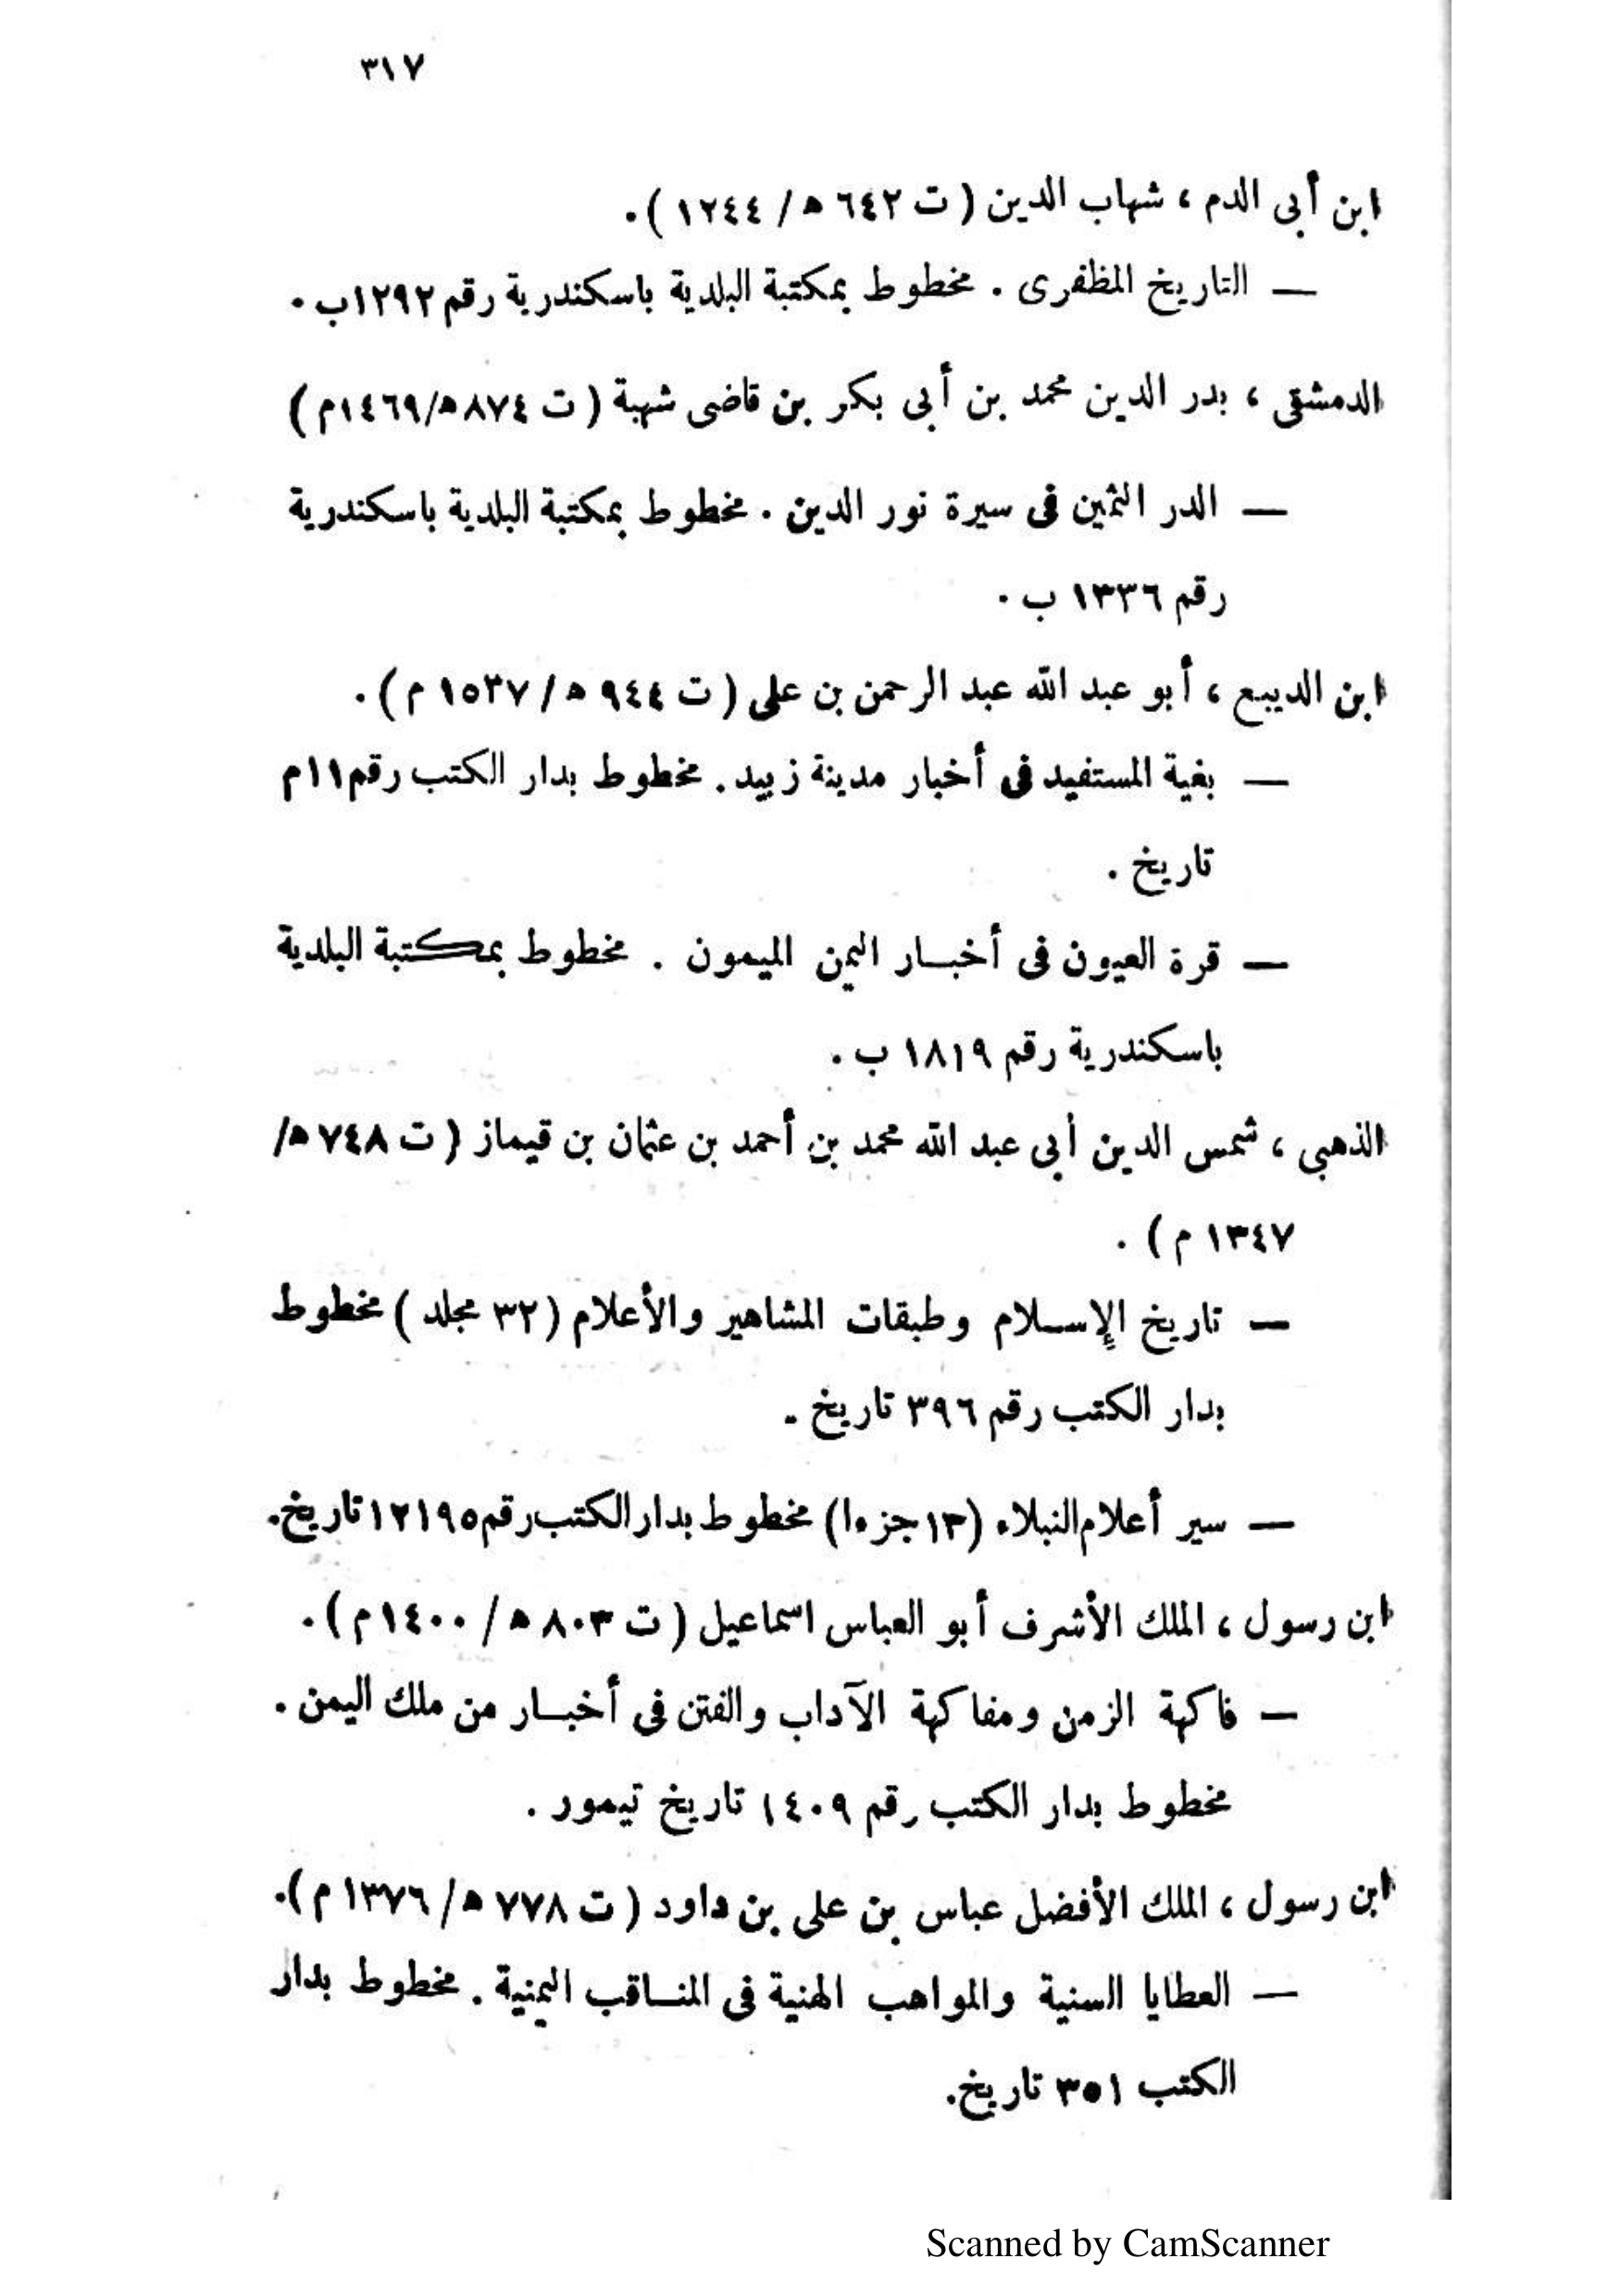 ٣١٧
ابن أبى الدم ، شهاب الدين ( ت ٦٤٢ ه / ١٢٤٤ ) .
— التاريخ المظفرى . مخطوط بمكتبة البلدية باسكندرية رقم ١٢٩٢ب .
الدمشقى ، بدر الدين محمد بن أبى بكر بن قاضى شهبة ( ت ٨٧٤ه/١٤٦٩م )
— الدر الثمين فى سيرة نور الدين . مخطوط بمكتبة البلدية باسكندرية
رقم ١٣٣٦ ب .
ابن الديبع ، أبو عبد الله عبد الرحمن بن على ( ت ٩٤٤ ه / ١٥٣٧ م ) .
— بغية المستفيد فى أخبار مدينة زبيد . مخطوط بدار الكتب رقم ١١م
تاريخ .
— قرة العيون فى أخبـار اليمن الميمون . مخطوط بمكتبة البلدية
باسكندرية رقم ١٨١٩ ب .
الذهبى ، شمس الدين أبى عبد الله محمد بن أحمد بن عثمان بن قيماز ( ت ٧٤٨ ه/
١٣٤٧ م ) .
— تاريخ الإسـلام وطبقات المشاهير والأعلام ( ٣٢ مجلد ) مخطوط
بدار الكتب رقم ٣٩٦ تاريخ .
— سير أعلام النبلاء (١٣ جزءا) مخطوط بدار الكتب رقم ١٢١٩٥ تاريخ.
ابن رسول ، الملك الأشرف أبو العباس اسماعيل ( ت ٨٠٣ ه / ١٤٠٠م ) .
— فاكهة الزمن ومفاكهة الآداب والفتن فى أخبـار من ملك اليمن .
مخطوط بدار الكتب رقم ١٤٠٩ تاريخ تيمور .
ابن رسول ، الملك الأفضل عباس بن على بن داود ( ت ٧٧٨ ه/ ١٣٧٦ م ).
— العطايا السنية والمواهب الهنية فى المنـاقب اليمنية . مخطوط بدار
الكتب ٣٥١ تاريخ.
Scanned by CamScanner